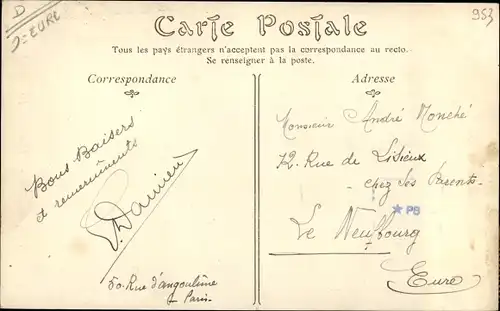 D
J=EURE
953
Carte Postale
Tous les pays étrangers n'acceptent pas la correspondance au recto.
Se renseigner à la poste.
Correspondance
Bons Baisers
et remerciments
Damien
50 Rue d'angoulême
Paris
Adresse
Monsieur André Monché
72. Rue de Lisieux
- chez ses Parents -
Le Neubourg
Eure
★PB